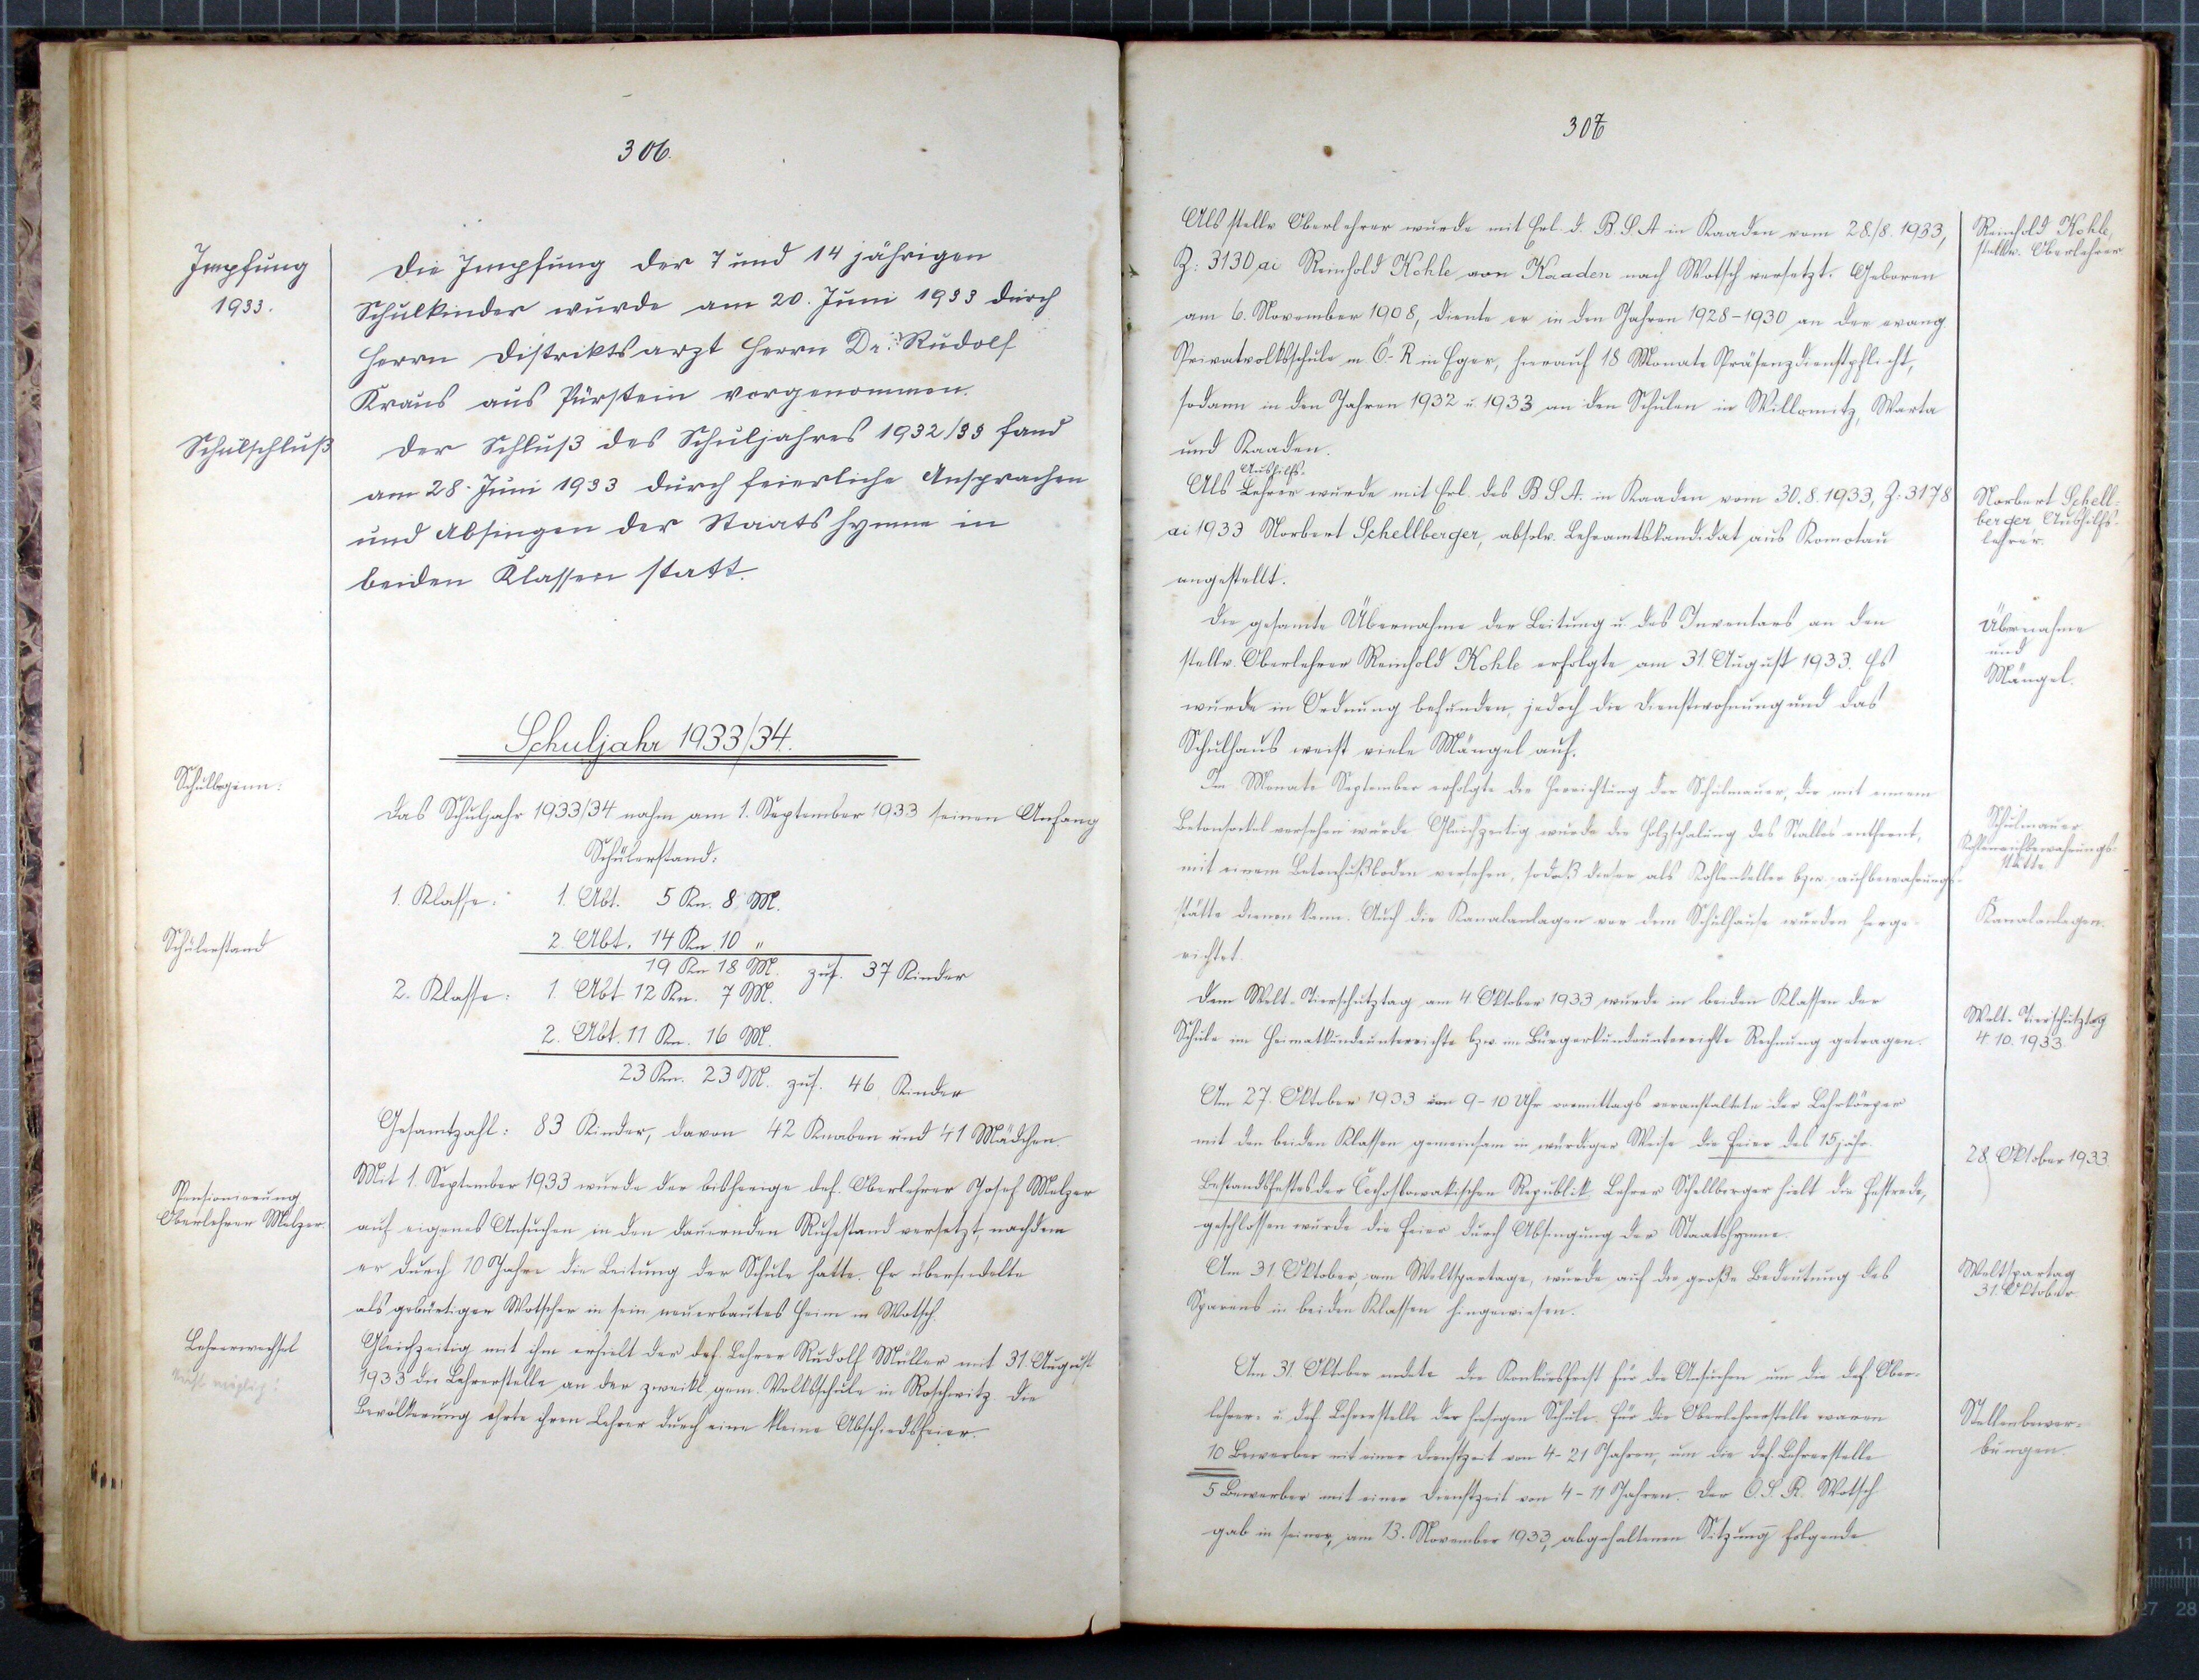 306.
Impfung
1933.
Die Impfung der 7 und 14 jährigen
Schulkinder wurde am 20. Juni 1933 durch
Herrn Distriktsarzt Herrn Dr. Rudolf
Kraus aus Pürstein vorgenommen.
Schulschluß
Der Schluß des Schuljahres 1932/33 fand
am 28. Juni 1933 durch feierliche Ansprachen
und Absingen der Staatshymne in
beiden Klassen statt.
Schuljahr 1933/34.
Schulbeginn:
Das Schuljahr 1933/34 nahm am 1. September 1933 seinen Anfang
Schülerstand:
1. Klasse: 1. Abt. 5 Kn. 8 M.
Schülerstand
2. Abt. 14 Kn. 10 "
19 Kn 18 M. zus. 37 Kinder
2. Klasse: 1. Abt 12 Kn. 7 M.
2. Abt. 11 Kn. 16 M.
23 Kn. 23 M. zus. 46 Kinder
Gesamtzahl: 83 Kinder, davon 42 Knaben und 41 Mädchen.
Pensionierung
Oberlehrer Melzer.
Mit 1. September 1933 wurde der bisherige def. Oberlehrer Josef Melzer
auf eigenes Ansuchen in den dauernden Ruhestand versetzt, nachdem
er durch 10 Jahre die Leitung der Schule hatte. Er übersiedelte
als gebürtiger Wotscher in sein neuerbautes Heim in Wotsch.
Lehrerwechsel
Gleichzeitig mit ihm erhielt der def. Lehrer Rudolf Müller mit 31. August
1933 die Lehrerstelle an der zweikl. gem. Volksschule in Roschwitz. Die
Bevölkerung ehrte ihren Lehrer durch eine kleine Abschiedsfeier.
307
Als stellv. Oberlehrer wurde mit Erl. d. B.S.A in Kaaden vom 28./8. 1933,
Z: 3130 ai Reinhold Kohle von Kaaden nach Wotsch versetzt. Geboren
am 6. November 1908, diente er in den Jahren 1928-1930 an der evang
Privatvolksschule m. Ö-R in Eger, hierauf 18 Monate Präsenzdienstpflicht,
sodann in den Jahren 1932 u. 1933 an den Schulen in Willomitz, Warta
und Kaaden.
Reinhold Kohle,
stellv. Oberlehrer
Aushilfs-
Als Lehrer wurde mit Erl. des B.S.A. in Kaaden vom 30.8.1933, Z: 3178
ai 1933 Norbert Schellberger, absolv. Lehramtskandidat aus Komotau
angestellt.
Norbert Schell-
berger, Aushilfs-
lehrer.
Die gesamte Übernahme der Leitung u. des Inventars an den
stellv. Oberlehrer Reinhold Kohle erfolgte am 31. August 1933. Es
wurde in Ordnung befunden, jedoch die Dienstwohnung und das
Schulhaus weist viele Mängel auf.
Übernahme
und
Mängel.
Im Monate September erfolgte die Herrichtung der Schulmauer, die mit einem
Betonsockel versehen wurde. Gleichzeitig wurde die Holzschalung des Stalles entfernt,
mit einem Betonfußboden versehen, sodaß dieser als Kohlenkeller bzw. aufbewahrungs-
stätte dienen kann. Auch die Kanalanlagen vor dem Schulhause wurden herge-
richtet.
Schulmauer
Kohlenaufbewahrungs-
stätte
Kanalanlagen.
Dem Welt-Tierschutztag am 4. Oktober 1933 wurde in beiden Klassen der
Schule im Heimatkundeunterrichte bzw. im Bürgerkundeunterrichte Rechnung getragen.
Welt-Tierschutztag
4. 10. 1933
Am 27. Oktober 1933 von 9-10 Uhr vormittags veranstaltete der Lehrkörper
mit den beiden Klassen gemeinsam in würdiger Weise die Feier des 15jähr.
Bestandsfestes der Čechoslowakischen Republik. Lehrer Schellberger hielt die Festrede,
geschlossen wurde die Feier durch Absingung der Staatshymne.
28. Oktober 1933.
Am 31. Oktober, am Weltspartage, wurde auf die große Bedeutung des
Sparens in beiden Klassen hingewiesen.
Weltspartag
31. Oktober
Am 31. Oktober endete die Konkursfrist für die Ansuchen um die def. Ober-
lehrer- u. def. Lehrerstelle der hiesigen Schule. Für die Oberlehrerstelle waren
10 Bewerber mit einer Dienstzeit von 4-21 Jahren, um die def. Lehrerstelle
5 Bewerber mit einer Dienstzeit von 4-11 Jahren. Der O.S.R. Wotsch
gab in seiner, am 13. November 1933, abgehaltenen Sitzung folgende
Stellenbewer-
bungen.
11
27 28